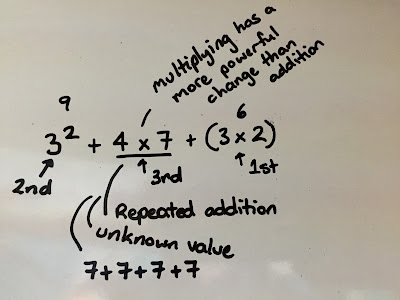 multiplying has a
more powerful
change than
addition
9
6
3² + 4 x 7 + (3 x 2)
2nd
3rd
1st
Repeated addition
unknown value
7+7+7+7